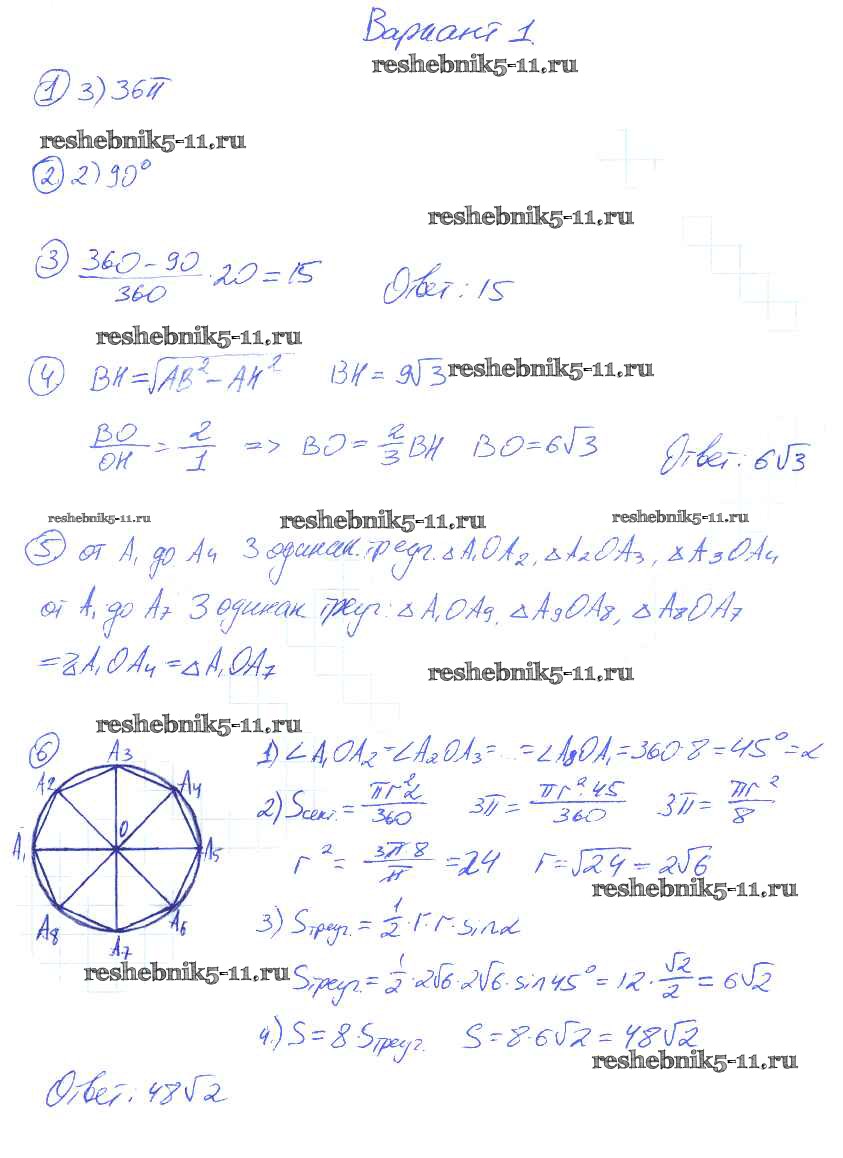 Вариант 1.
reshebnik5-11.ru
1 3) 36π
reshebnik5-11.ru
2 2) 90°
reshebnik5-11.ru
3 (360-90)/360 · 20 = 15 Ответ: 15
reshebnik5-11.ru
4 BH = √(AB² - AH²) BH = 9√3
reshebnik5-11.ru
BO/OH = 2/1 => BO = 2/3 BH BO = 6√3 Ответ: 6√3
reshebnik5-11.ru reshebnik5-11.ru reshebnik5-11.ru
5 от A₁ до A₄ 3 одинак. треуг. △A₁OA₂, △A₂OA₃, △A₃OA₄
от A₁ до A₇ 3 одинак треуг: △A₁OA₉, △A₉OA₈, △A₈OA₇
= △A₁OA₄ = △A₁OA₇
reshebnik5-11.ru
reshebnik5-11.ru
6 1) ∠A₁OA₂ = ∠A₂OA₃ = ... = ∠A₈OA₁ = 360 · 8 = 45° = α
A₃
A₂ A₄
O
A₁ A₅
A₈ A₆
A₇
2) Sсект. = πr²α/360 3π = πr²·45/360 3π = πr²/8
r² = 3π·8/π = 24 r = √24 = 2√6
reshebnik5-11.ru
3) Sтреуг. = 1/2 · r · r · sinα
reshebnik5-11.ru
Sтреуг. = 1/2 · 2√6 · 2√6 · sin45° = 12 · √2/2 = 6√2
4.) S = 8 · Sтреуг. S = 8 · 6√2 = 48√2
reshebnik5-11.ru
Ответ: 48√2